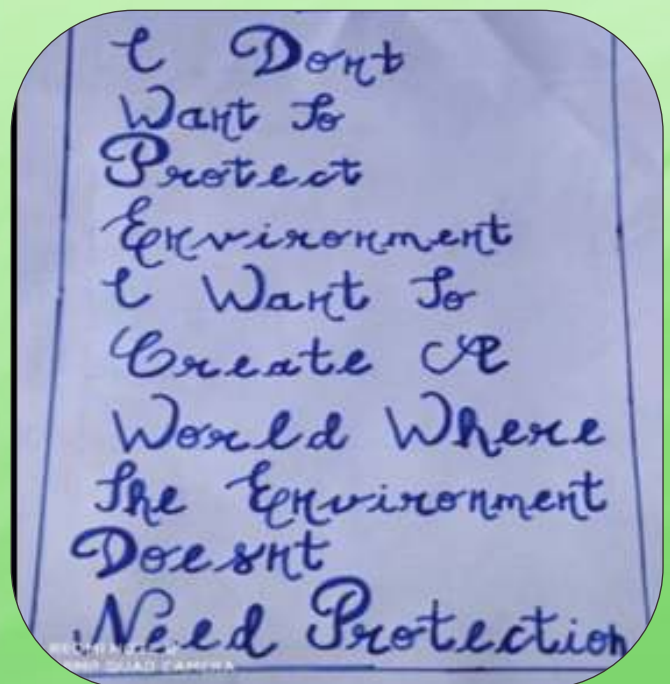 I Dont
Want To
Protect
Environment
I Want To
Create A
World Where
The Environment
Doesnt
Need Protection
QUAD CAMERA